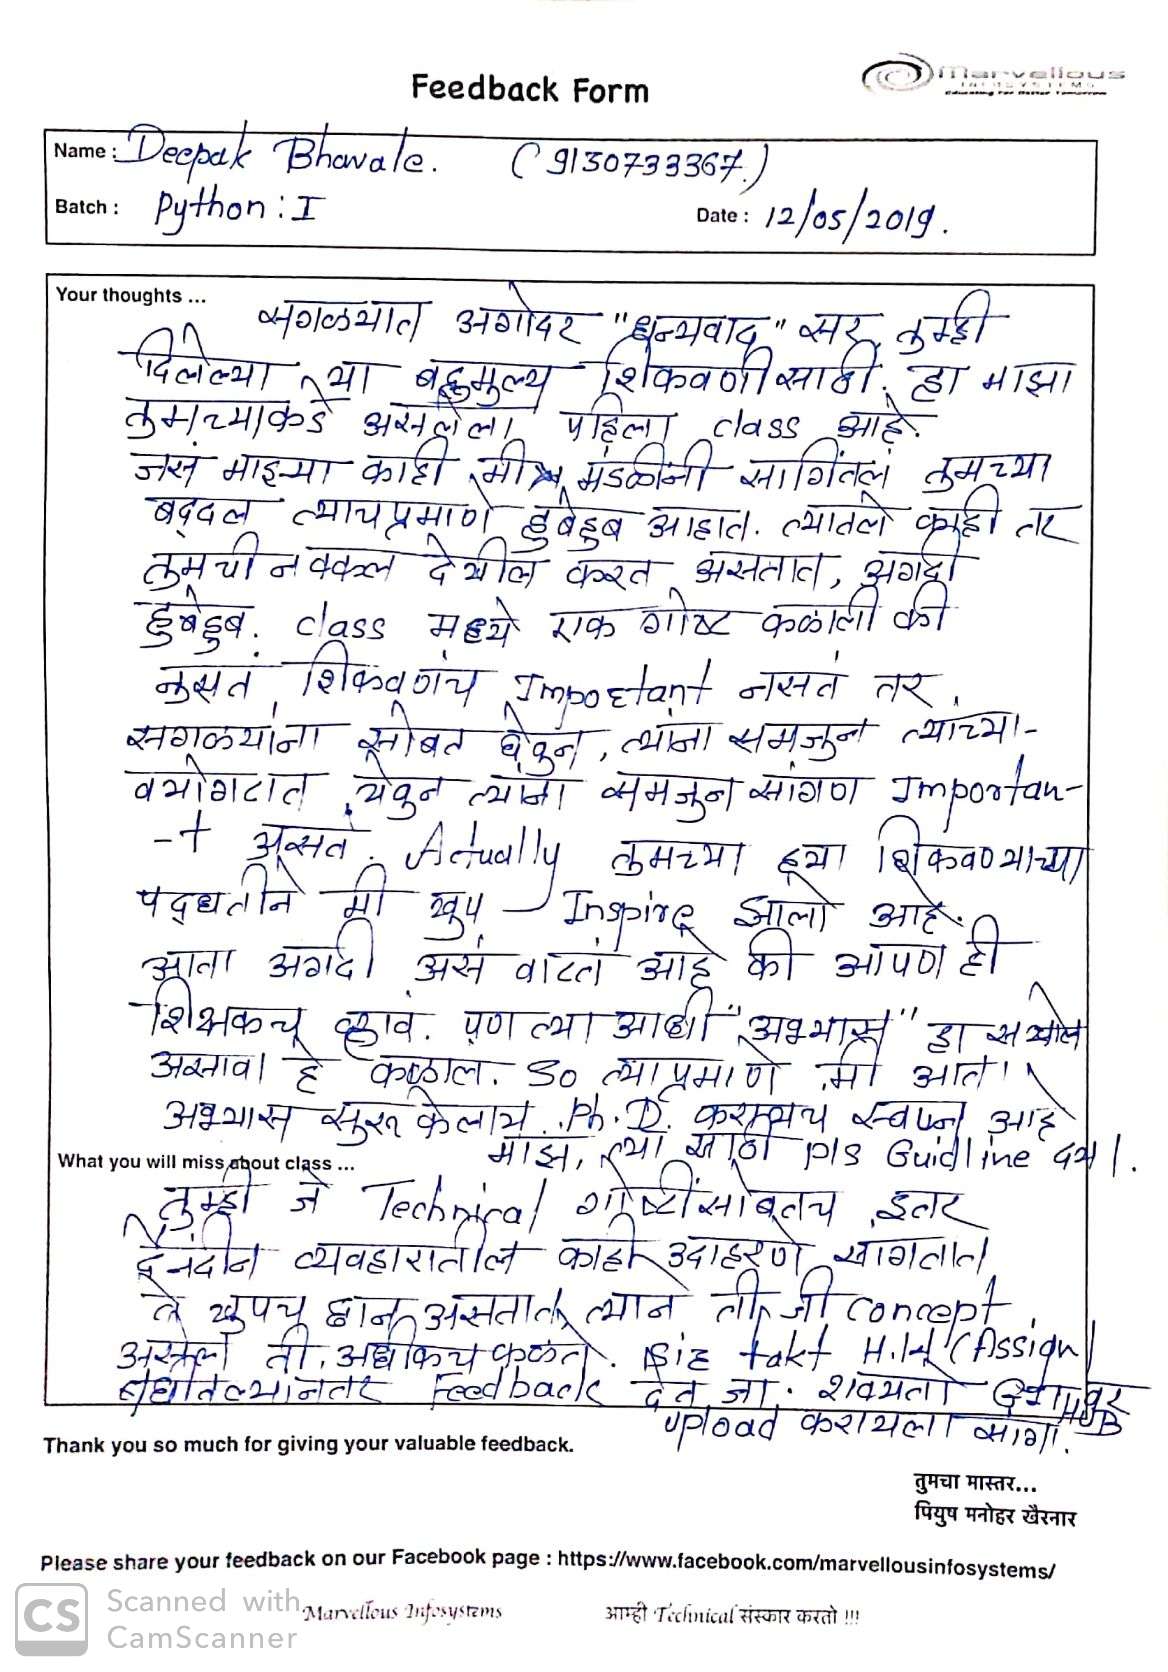 Feedback Form
Marvellous
INFOSYSTEMS
Educating For Better Tomorrow
Name : Deepak Bhavale. (9130733367.)
Batch : Python : I
Date : 12/05/2019.
Your thoughts ...
सगळ्यात अगोदर "धन्यवाद" सर, तुम्ही
दिलेल्या या बहुमुल्य शिकवणीसाठी. हा माझा
तुमच्याकडे असलेला पहिला class आहे.
जसं माझ्या काही मंडळींनी सांगितलं तुमच्या
बद्दल त्याचप्रमाणे हुबेहुब आहात. त्यातले काही तर
तुमची नक्कल देखील करत असतात, अगदी
हुबेहुब. class मध्ये एक गोष्ट कळाली की
नुसतं शिकवणंच Important नसतं तर
सगळ्यांना सोबत घेवुन, त्यांना समजुन त्यांच्या-
वयोगटात येवुन त्यांना समजुन सांगण Importan-
-t असतं. Actually तुमच्या ह्या शिकवण्याच्या
पद्धतीने मी खुप Inspire झालो आहे.
आता अगदी असं वाटतं आहे की आपण ही
शिक्षकच व्हावं. पण त्या आधी "अभ्यास" हा सखोल
असावा हे कळाल. So त्याप्रमाणे मी आता
अभ्यास सुरू केलाय. Ph.D. करायच स्वप्न आहे
माझं, त्या साठी pls Guidline दया.
What you will miss about class ...
तुम्ही जे Technical गोष्टींसोबतच इतर
दैनंदीन व्यवहारातील काही उदाहरणे सांगतात
ते खुपच छान असतात, त्याने ती जी concept
असेल ती अधीकच कळते. Sir takt H.W (Assign)
Feedback देत जा. शक्यतो GitHUB वर
upload करायला सांगा.
Thank you so much for giving your valuable feedback.
तुमचा मास्तर...
पियुष मनोहर खैरनार
Please share your feedback on our Facebook page : https://www.facebook.com/marvellousinfosystems/
Marvellous Infosystems आम्ही Technical संस्कार करतो !!!
CS Scanned with
CamScanner